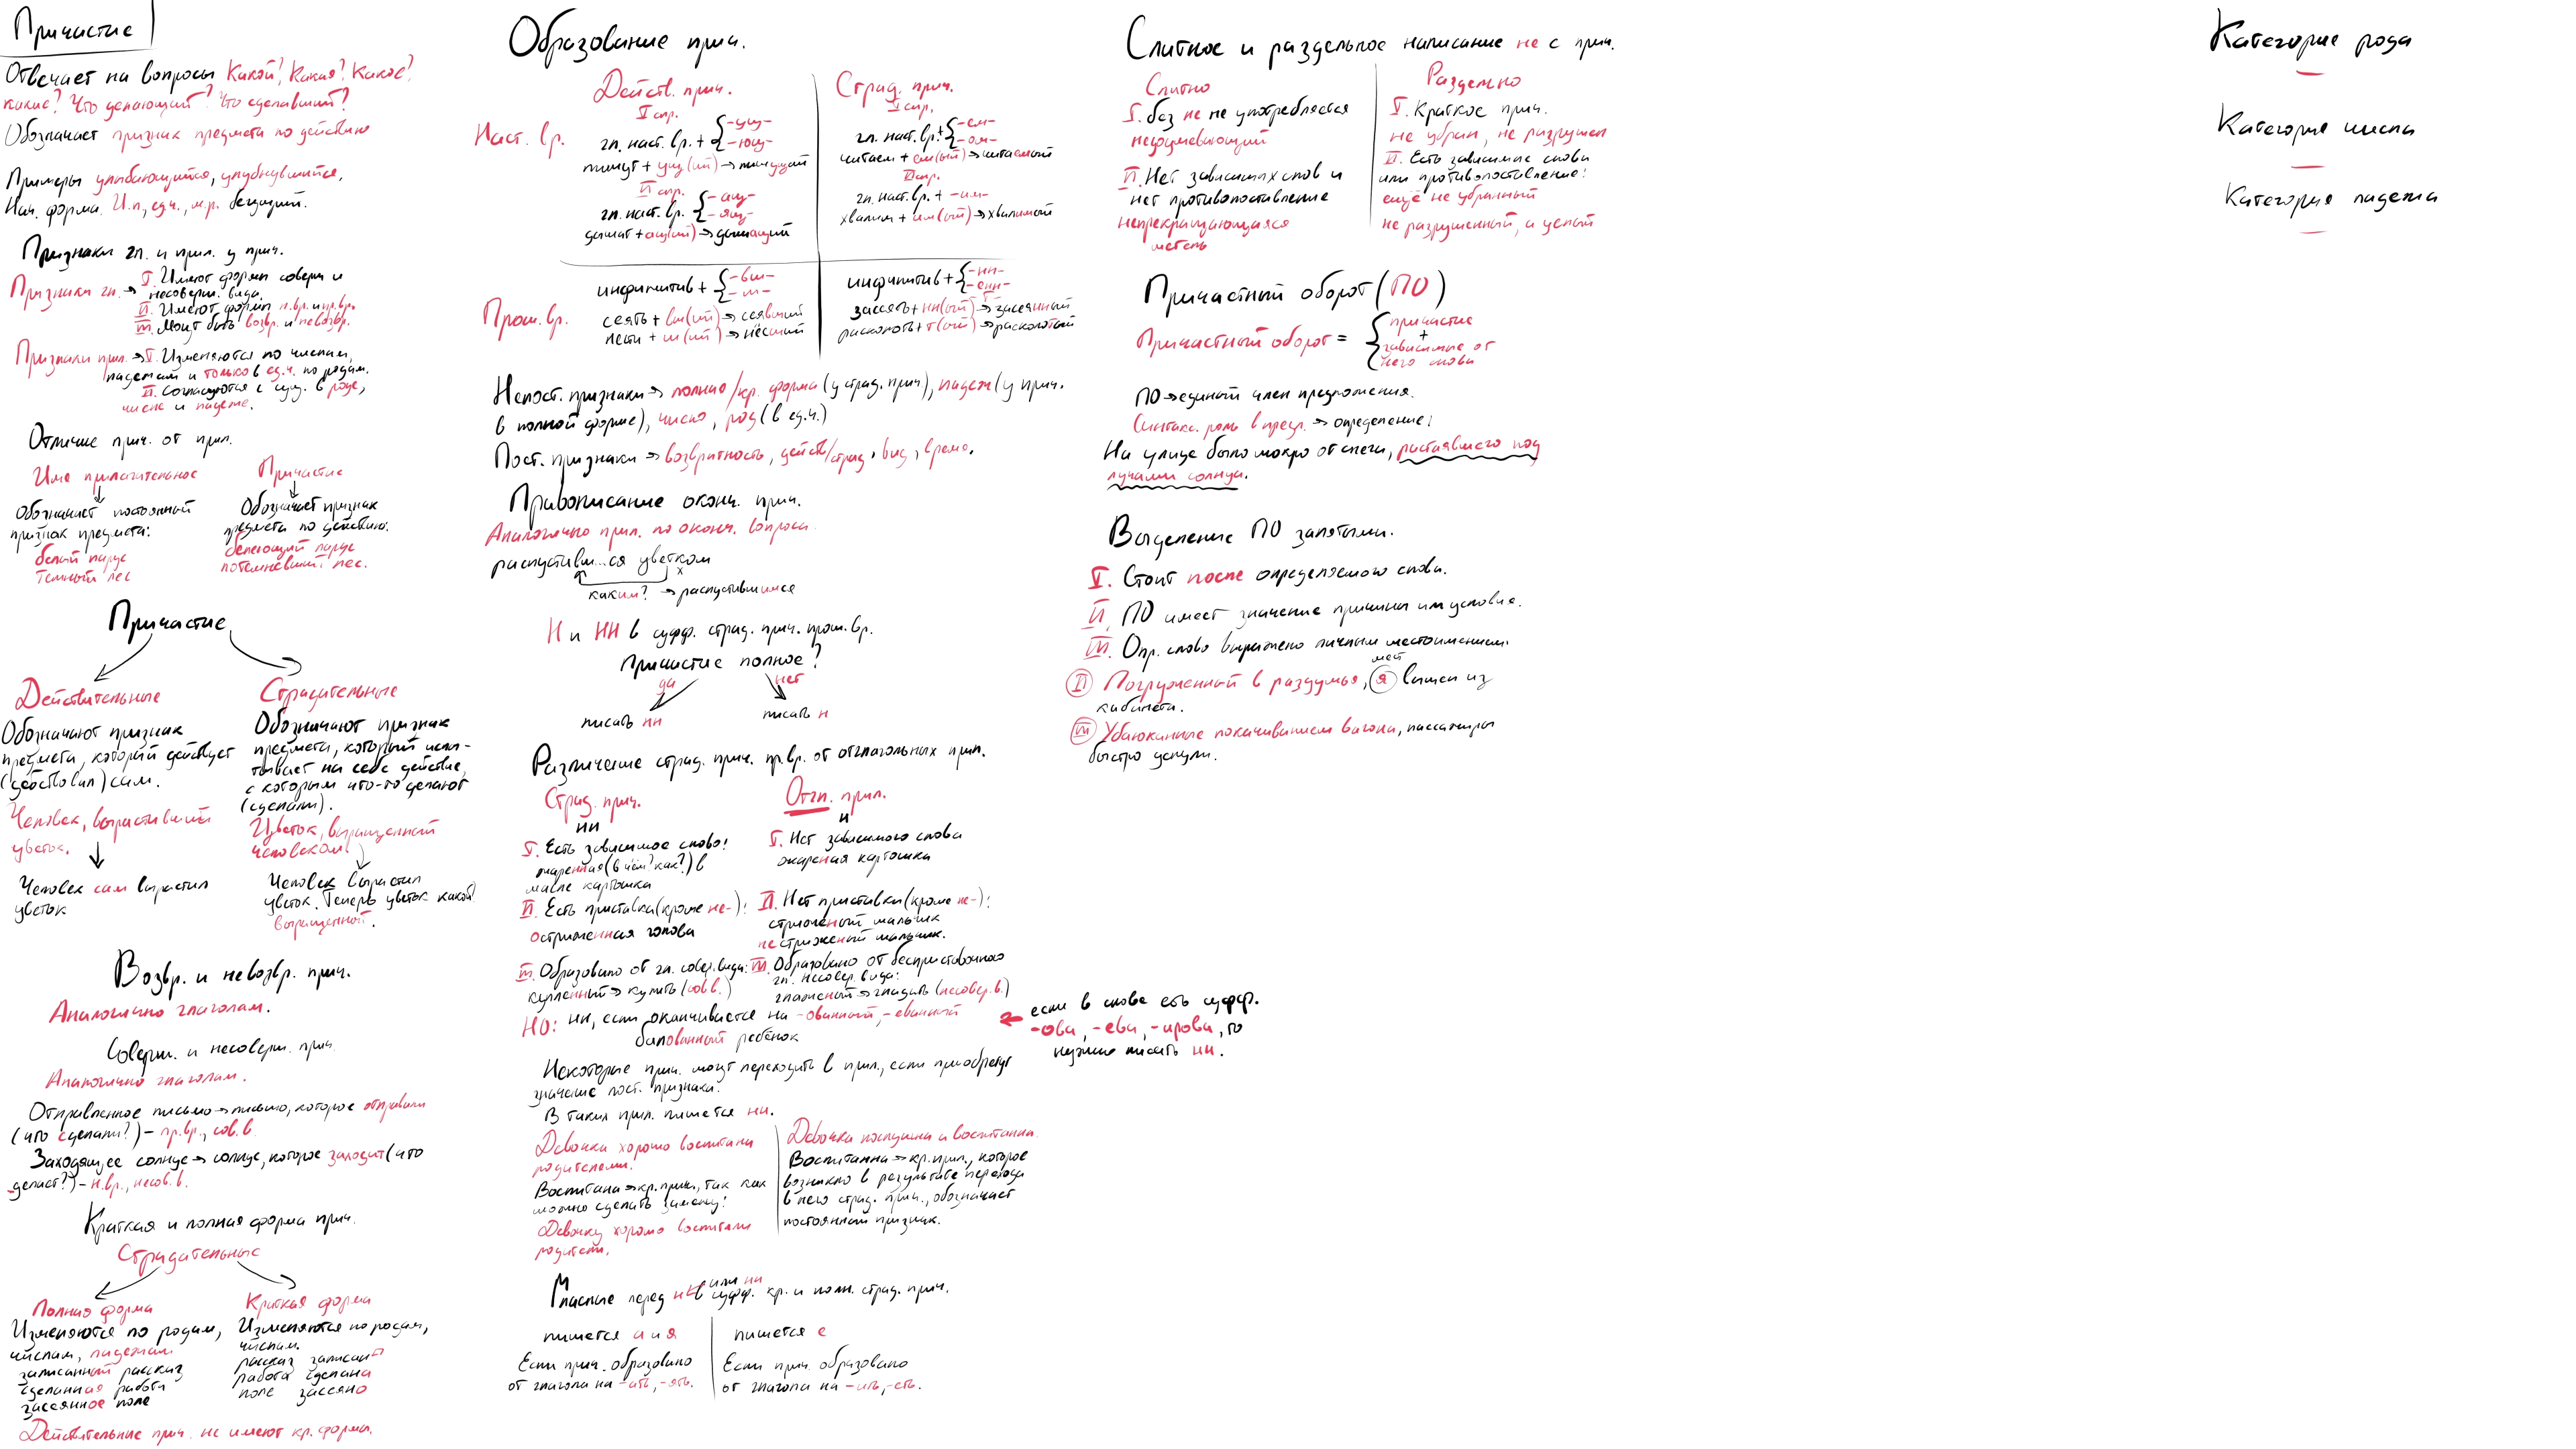 Причастие
Отвечает на вопросы Какой? Какая? Какое?
Какие? Что делающий? Что сделавший?
Обозначает признак предмета по действию
Примеры улыбающийся, улыбнувшийся,
Нач. форма. И.п., ед.ч., м.р. бегущий.
Признаки гл. и прил. у прич.
Признаки гл. → I. Имеют формы соверш и
несоверш. вида.
II. Имеют формы н.вр. и пр.вр.
III. Могут быть возвр. и невозвр.
Признаки прил. → I. Изменяются по числам,
падежам и только в ед.ч. по родам.
II. Согласуются с сущ. в роде,
числе и падеже.
Отличие прич. от прил.
Имя прилагательное
Обозначает постоянный
признак предмета:
белый парус
темный лес
Причастие
Обозначает признак
предмета по действию:
белеющий парус
потемневший лес.
Причастие
Действительные
Обозначают признак
предмета, который действует
(действовал) сам.
Человек, вырастивший
цветок.
Человек сам вырастил
цветок
Страдательные
Обозначают признак
предмета, который испы-
тывает на себе действие,
с которым что-то делают
(сделали).
Цветок, выращенный
человеком.
Человек вырастил
цветок. Теперь цветок какой?
выращенный.
Возвр. и невозвр. прич.
Аналогично глаголам.
Соверш. и несоверш. прич.
Аналогично глаголам.
Отправленное письмо → письмо, которое отправили
(что сделали?) – пр.вр., сов.в
Заходящее солнце → солнце, которое заходит (что
делает?) – н.вр., несов.в.
Краткая и полная форма прич.
Страдательные
Полная форма
Изменяются по родам,
числам, падежам
записанный рассказ
сделанная работа
засеянное поле
Краткая форма
Изменяются по родам,
числам.
рассказ записан
работа сделана
поле засеяно
Действительные прич. не имеют кр. форма.
Образование прич.
Действ. прич.
Страд. прич.
Наст. вр.
I спр.
гл. наст. вр. + { -ущ- -ющ-
пишут + ущ(ий) → пишущий
II спр.
гл. наст. вр. { -ащ- -ящ-
дышат + ащ(ий) → дышащий
I спр.
гл. наст. вр. + { -ем- -ом-
читаем + ем(ый) → читаемый
II спр.
гл. наст. вр. + -им-
хвалим + им(ый) → хвалимый
Прош. вр.
инфинитив + { -вш- -ш-
сеять + вш(ий) → сеявший
нести + ш(ий) → нёсший
инфинитив + { -нн- -енн-
засеять + нн(ый) → засеянный
расколоть + т(ый) → расколотый
Непост. признаки → полная/кр. форма (у страд. прич), падеж (у прич.
в полной форме), число, род (в ед.ч.)
Пост. признаки → возвратность, действ/страд, вид, время.
Правописание оконч. прич.
Аналогично прил. по оконч. вопроса
распустивш...ся цветком
каким? → распустившимся
Н и НН в суфф. страд. прич. прош. вр.
Причастие полное?
да
нет
писать нн
писать н
Различение страд. прич. пр.вр. от отглагольных прил.
Страд. прич.
нн
I. Есть зависимое слово:
жаренная (в чём? как?) в
масле картошка
II. Есть приставка (кроме не-):
остриженная голова
III. Образовано от гл. совер. вида:
купленный → купить (сов в.)
Отгл. прил.
н
I. Нет зависимого слова
жареная картошка
II. Нет приставки (кроме не-):
стриженый мальчик
нестриженый мальчик.
III. Образовано от бесприставочного
гл. несовер. вида:
глаженый → гладить (несовер. в.)
НО: нн, если оканчивается на -ованный, -еванный
балованный ребёнок
← если в слове есть суфф.
-ова, -ева, -ирова, то
нужно писать нн.
Некоторые прич. могут переходить в прил., если приобретут
значение пост. признака.
В таких прил. пишется нн.
Девочка хорошо воспитана
родителями.
Воспитана → кр. прич, так как
можно сделать замену:
Девочку хорошо воспитали
родители.
Девочка послушна и воспитанна.
Воспитанна → кр. прил., которое
возникло в результате перехода
в него страд. прич., обозначает
постоянный признак.
Гласные перед н или нн в суфф. кр. и полн. страд. прич.
пишется а и я
Если прич. образовано
от глагола на -ать, -ять.
пишется е
Если прич. образовано
от глагола на -ить, -еть.
Слитное и раздельное написание не с прич.
Слитно
I. без не не употребляется
недоумевающий
II. Нет зависимых слов и
нет противопоставление
непрекращающаяся
метель
Раздельно
I. Краткое прич.
не убран, не разрушен
II. Есть зависимые слова
или противопоставление:
ещё не убранный
не разрушенный, а целый
Причастный оборот (ПО)
Причастный оборот = { причастие
+
зависимые от
него слова
ПО → единый член предложения.
Синтакс. роль в предл. → определение:
На улице было мокро от снега, растаявшего под
лучами солнца.
Выделение ПО запятыми.
I. Стоит после определяемого слова.
II. ПО имеет значение причины или условия.
III. Опр. слово выражено личным местоимением.
мест
II Погруженный в раздумья, я вышел из
кабинета.
III Убаюканные покачиванием вагона, пассажиры
быстро уснули.
Категория рода
Категория числа
Категория падежа